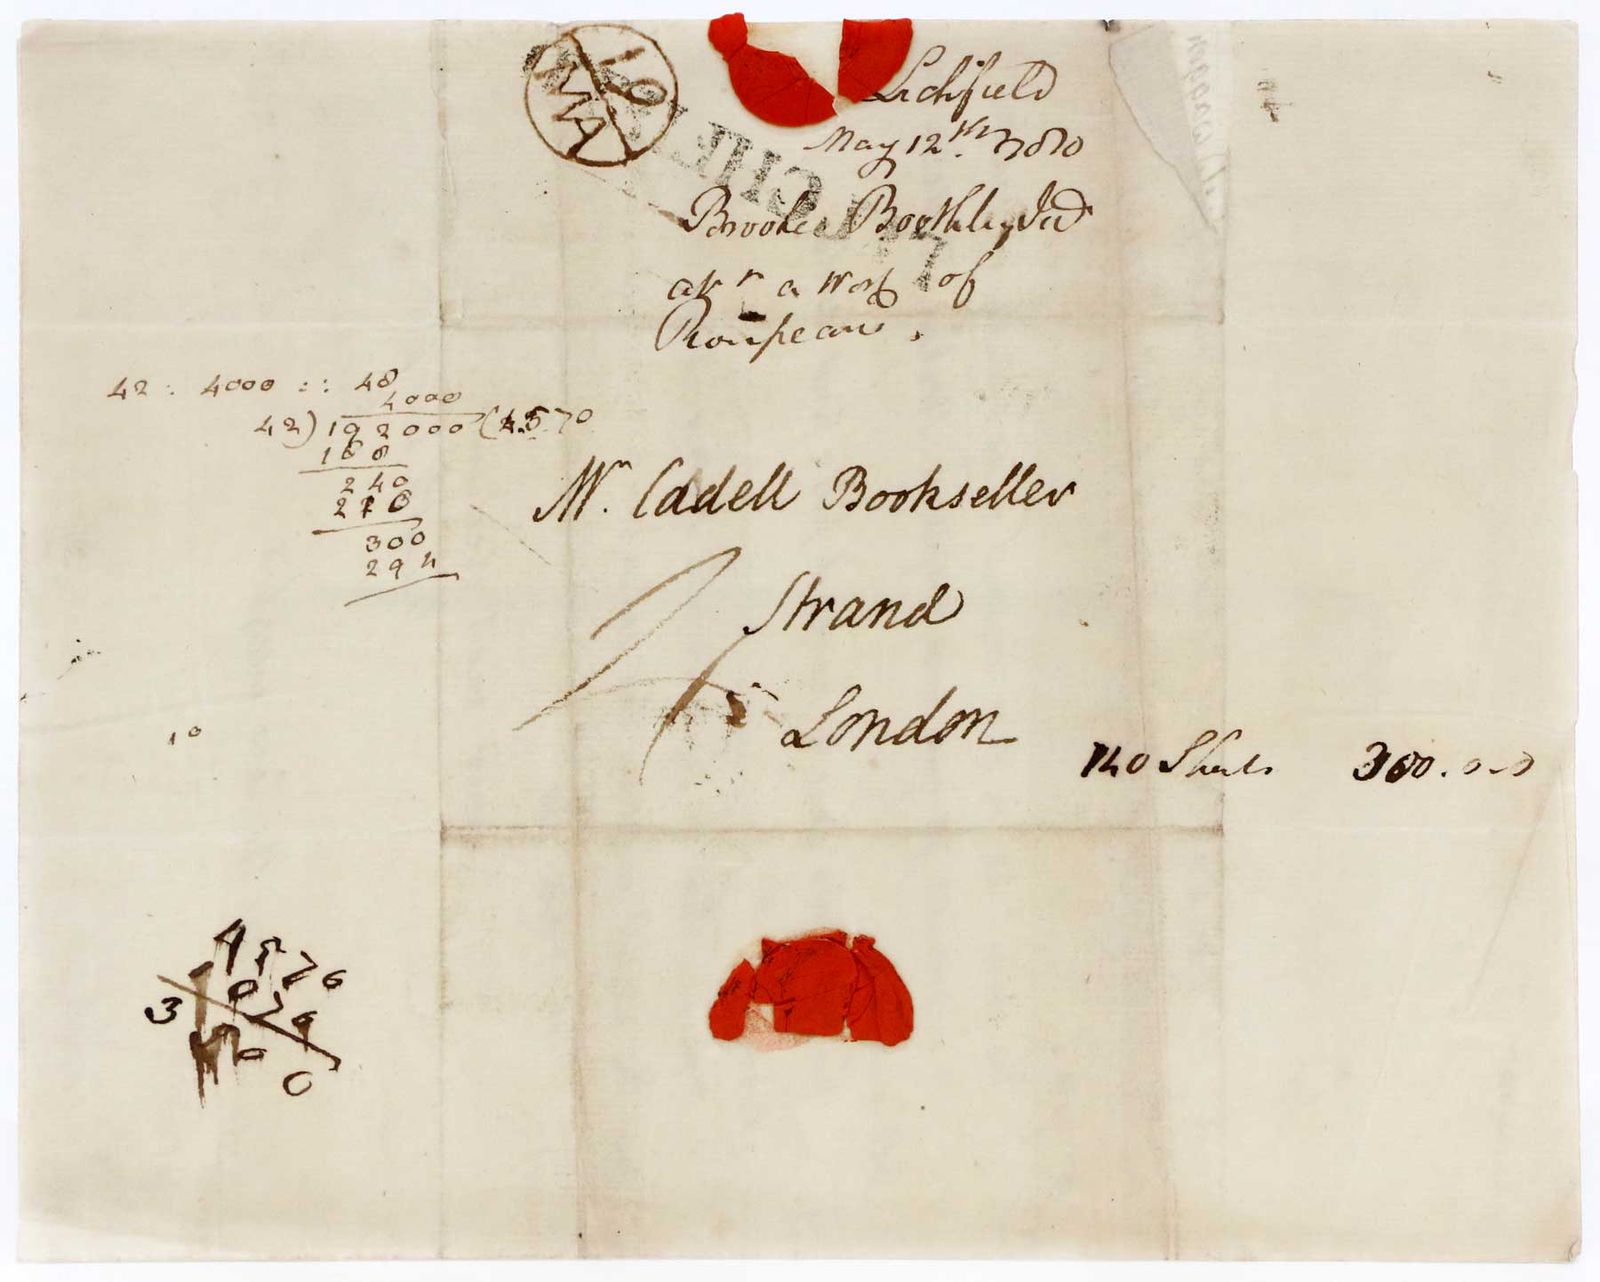 19
MA
LITCHFIELD
Lichfield
May 12th. 1780
Brooke Boothby Jun
abt a work of
Rousseaus.
42 : 4000 :: 48
4000
42) 192000 (4570
168
240
210
300
294
Mr. Cadell Bookseller
Strand
London
10
140 Sheets 300.0.0
4576
3
0